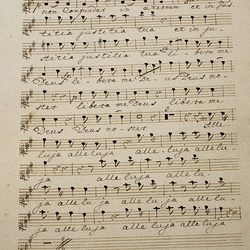 non confundar in aeternum et in jus
titia justitia tua et in ju
stitia justitia tua li bera me
Deus li bera me De us Deus no
ster libera me Deus libera me
Deus Deus noster Alle
luja alleluja alleluja allelu
ja alleluja allelu
ja alleluja alleluja allelu
ja alleluja alleluja